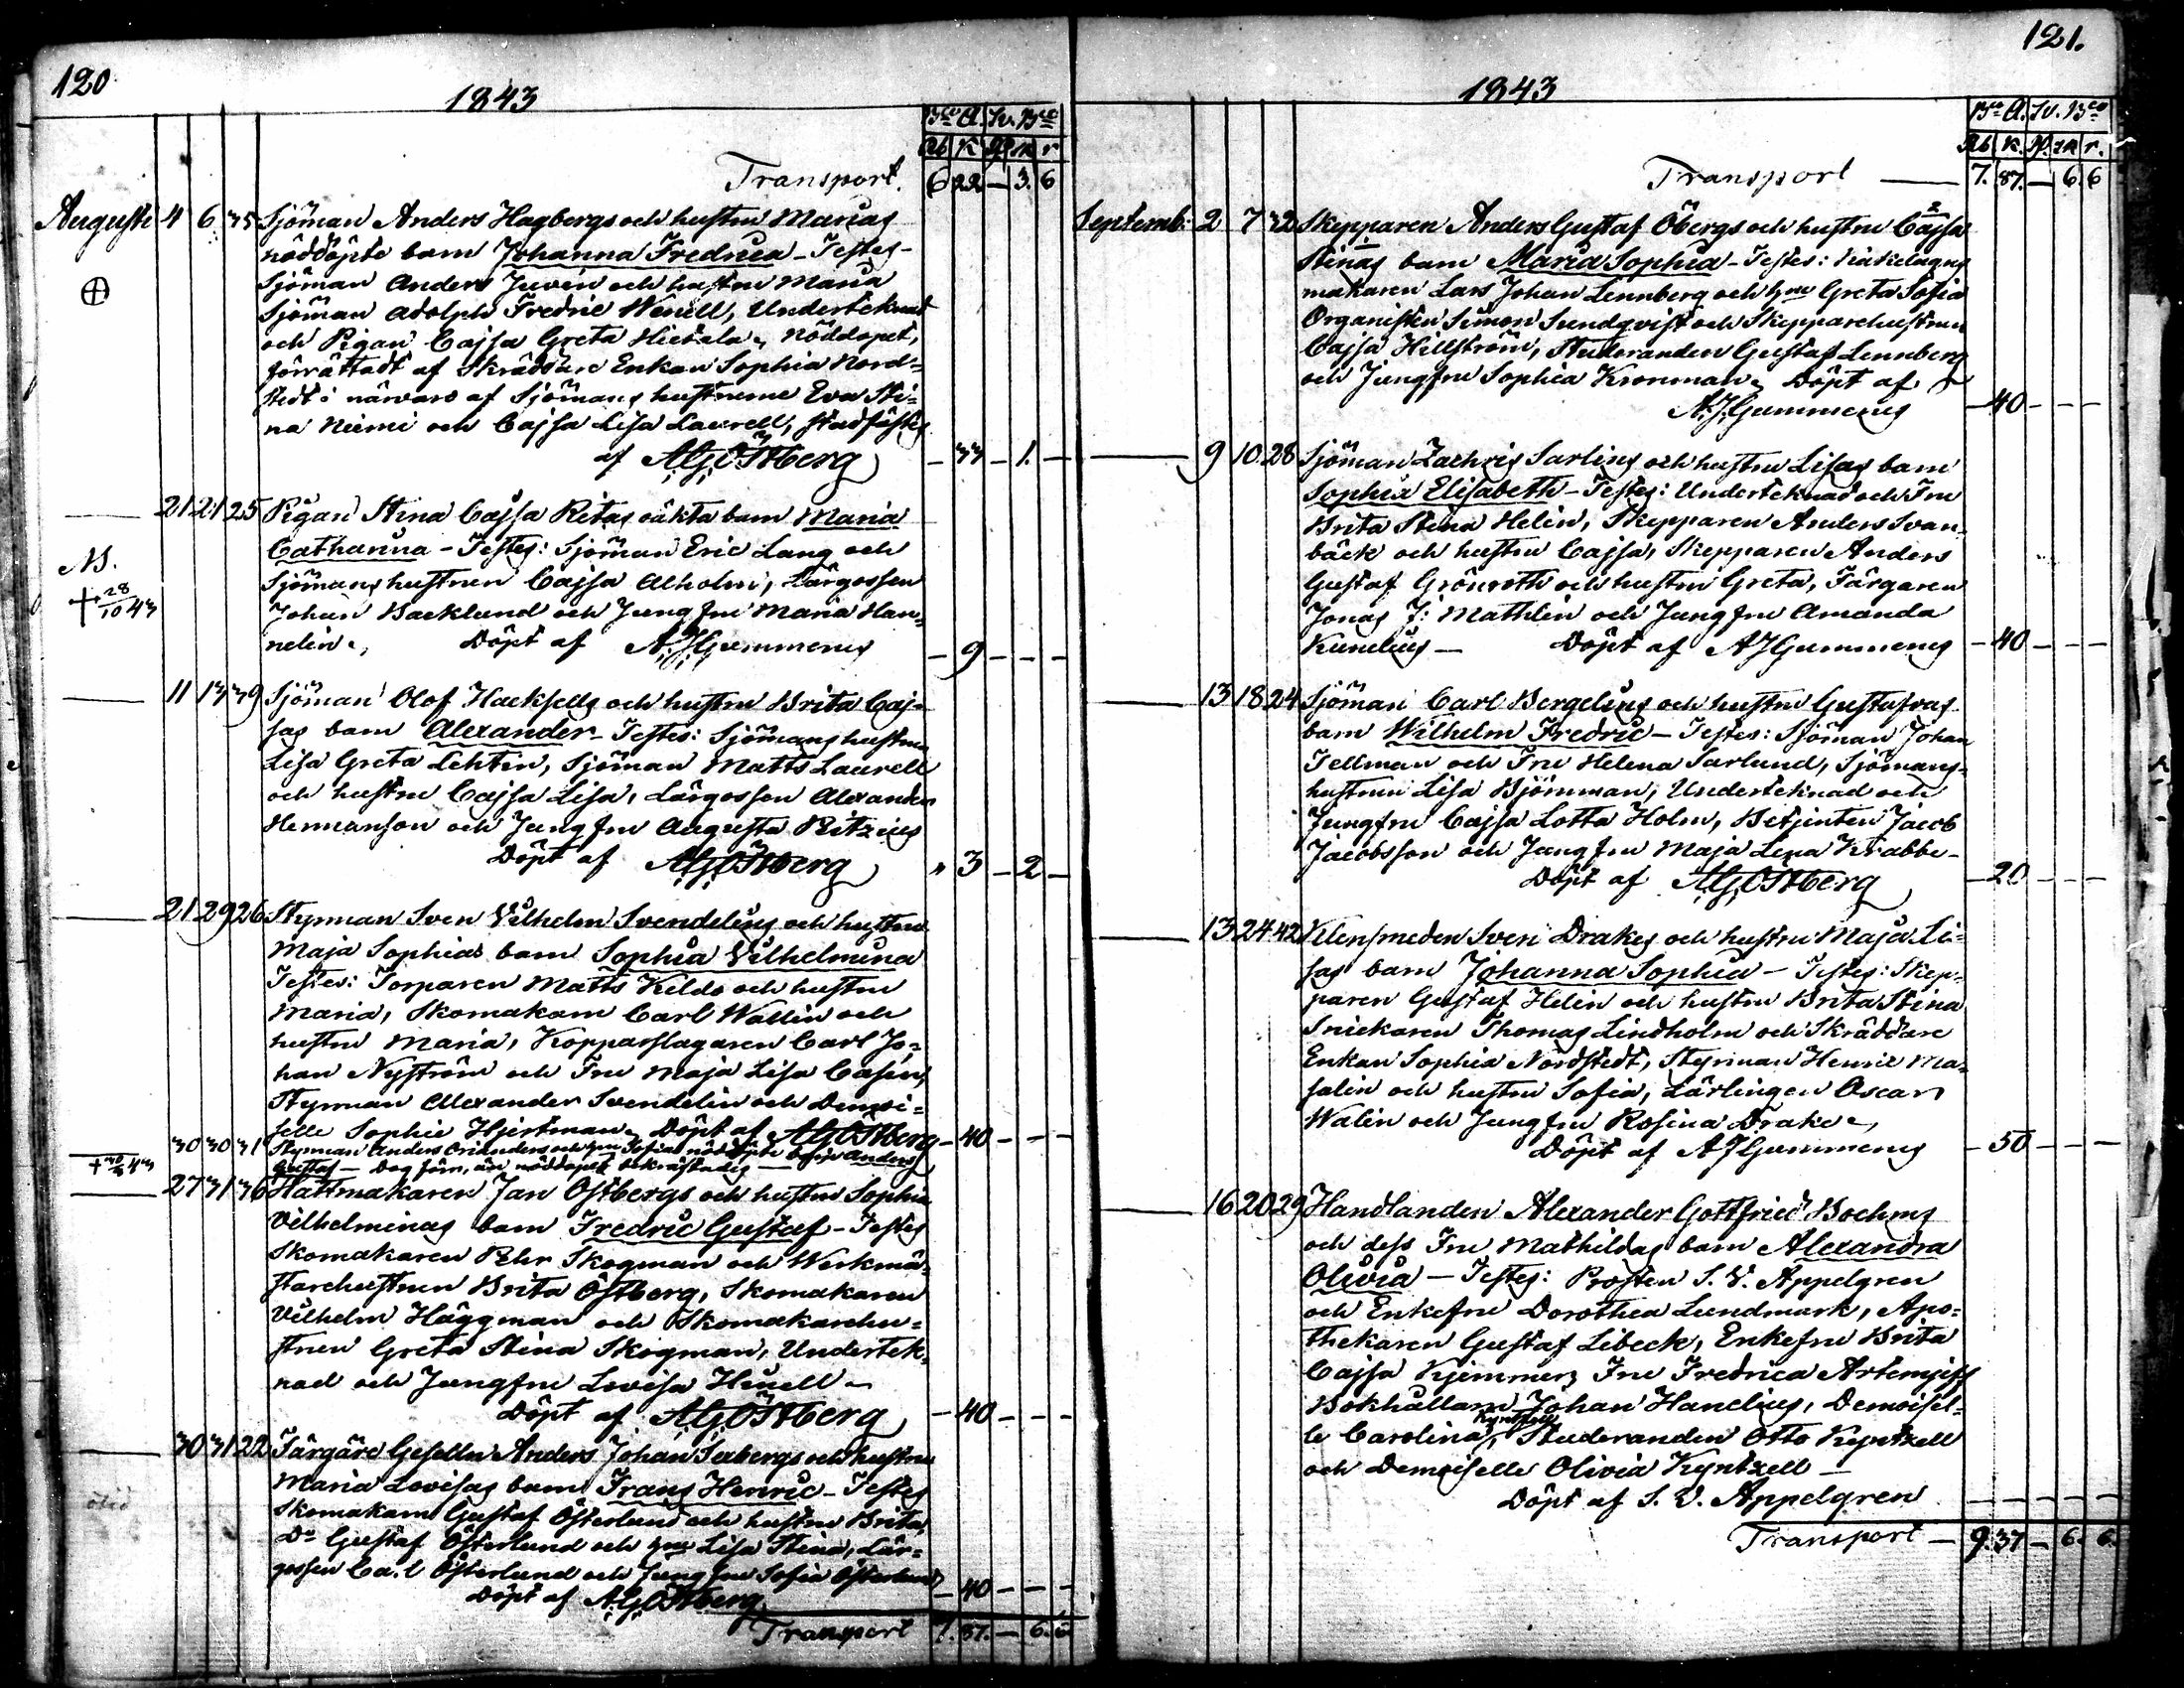 120
1843
Bco A. Sv. Bco
Rb K Rp sk r
Transport. 6 22 — 3. 6
Augusti 4 6 35 Sjöman Anders Hagbergs och hustru Marias
nöddöpte barn Johanna Fredrica – Testes –
Sjöman Anders Juvén och hustru Maria
Sjöman Adolph Fredric Werell, Undertecknad
och Pigan Cajsa Greta Hietala, Nöddopet,
förrättadt af Skräddare Enkan Sophia Nord=
stedt i närvaro af Sjömans hustrurne Eva Sti=
na Niemi och Cajsa Lisa Laurell, stadfästes
af AGÖstberg — 33 — 1. —
21 21 25 Pigan Stina Cajsa Ritas oäkta barn Maria
Catharina – Testes: Sjöman Eric Lang och
NB.
Sjömans hustrun Cajsa Alholm, Lärgossen
+ 28/10 43
Johan Backlund och Jungfru Maria Han=
nelin. Döpt af AJGummerus — 9 — — —
11 13 39 Sjöman Olof Hacksells och hustru Brita Caj=
sas barn Alexander – Testes: Sjömans hustrun
Lisa Greta Lehtin, Sjöman Matts Laurell
och hustru Cajsa Lisa, Lärgossen Alexander
Hermanson och Jungfru Augusta Ritzius
Döpt af AGÖstberg " 3 — 2 —
21 29 26 Styrman Sven Vilhelm Svendelins och hustru
Maja Sophias barn Sophia Vilhelmina
Testes: Torparen Matts Keldo och hustru
Maria, Skomakarn Carl Wallin och
hustru Maria, Kopparslagaren Carl Jo=
han Nyström och Fru Maja Lisa Casén,
Styrman Alexander Svendelin och Demoi=
selle Sophie Hjertman. Döpt af AGÖstberg — 40 — — —
30 30 31 Styrman Anders Orianders och hru Sofias nöddöpte barn Anders
+ 30/8 43 Gustaf – Dog förr, än nöddopet bekräftades —
27 31 36 Hattmakaren Jan Östbergs och hustru Sophia
Vilhelminas barn Fredric Gustaf – Testes
Skomakaren Pehr Skogman och Werkmä=
starehustrun Brita Östberg, Skomakaren
Vilhelm Häggman och Skomakarehu=
strun Greta Stina Skogman, Underteck=
nad och Jungfru Lovisa Hinell –
Döpt af AGÖstberg — 40 — — —
30 31 22 Färgare Gesellen Anders Johan Sebergs och hustru
Maria Lovisas barn Frans Henric – Testes
Skomakarn Gustaf Österlund och hustru Brita,
Do Gustaf Österlund och hru Lisa Stina, Lär=
gossen Carl Österlund och Jungfru Sofia Österlund — 40 — — —
Döpt af AGÖstberg
Transport 7. 87. — 6. 6
121.
1843
Bco A. Sv. Bco
Rb. K. Rp. sk r.
Transport — 7. 87. — 6. 6
Septemb. 2 7 32 Skepparen Anders Gustaf Öbergs och hustru Cajsa
Stinas barn Maria Sophia – Testes: Kakelugns
makaren Lars Johan Lennberg och hru Greta Sofia
Organisten Simon Sundqvist och Skepparehustrun
Cajsa Hellström, Studeranden Gustaf Lennberg
och Jungfru Sophia Kronman. Döpt af
AJGummerus — 40 — — —
9 10 28 Sjöman Zachris Sarlins och hustru Lisas barn
Sophia Elisabeth – Testes: Undertecknad och Fru
Brita Stina Helin, Skepparen Anders Svan=
bäck och hustru Cajsa, Skepparen Anders
Gustaf Grönroth och hustru Greta, Färgaren
Jonas J: Mathlin och Jungfru Amanda
Kunelius — Döpt af AJGummerus — 40 — — —
13 18 24 Sjöman Carl Bergelins och hustru Gustafvas
barn Wilhelm Fredric – Testes: Sjöman Johan
Tellman och Fru Helena Sarlund, Sjömans=
hustrun Lisa Björnman, Undertecknad och
Jungfru Cajsa Lotta Holm, Betjenten Jacob
Jacobsson och Jungfru Maja Lena Krabbe –
Döpt af AGÖstberg — 20 — — —
13 24 42 Klensmeden Sven Drakes och hustru Maja Li=
sas barn Johanna Sophia – Testes: Skep=
paren Gustaf Helin och hustru Brita Stina
Snickaren Thomas Lindholm och Skräddare
Enkan Sophia Nordstedt, Styrman Henric Ma=
salin och hustru Sofia, Lärlingen Oscar
Walin och Jungfru Rosina Drake.
Döpt af AJGummerus — 50 — — —
16 20 29 Handlanden Alexander Gottfried Boehms
och dess Fru Mathildas barn Alexandra
Olivia – Testes: Prosten S. V. Appelgren
och Enkefru Dorothea Lundmark, Apo=
thekaren Gustaf Libeck, Enkefru Brita
Cajsa Kjemmer, Fru Fredrica Artemjeff
Bokhållarn Johan Hanelius, Demoisel=
le Carolina Kyntzell, Studeranden Otto Kyntzell
och Demoiselle Olivia Kyntzell —
Döpt af S. V. Appelgren — — — — —
Transport — 9. 37 — 6. 6.